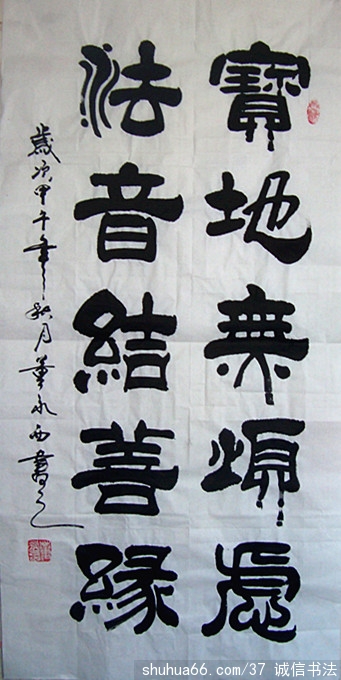 寶地無煩慮
法音結善緣
歲次甲午年秋月董永西書之
shuhua66.com/37 诚信书法